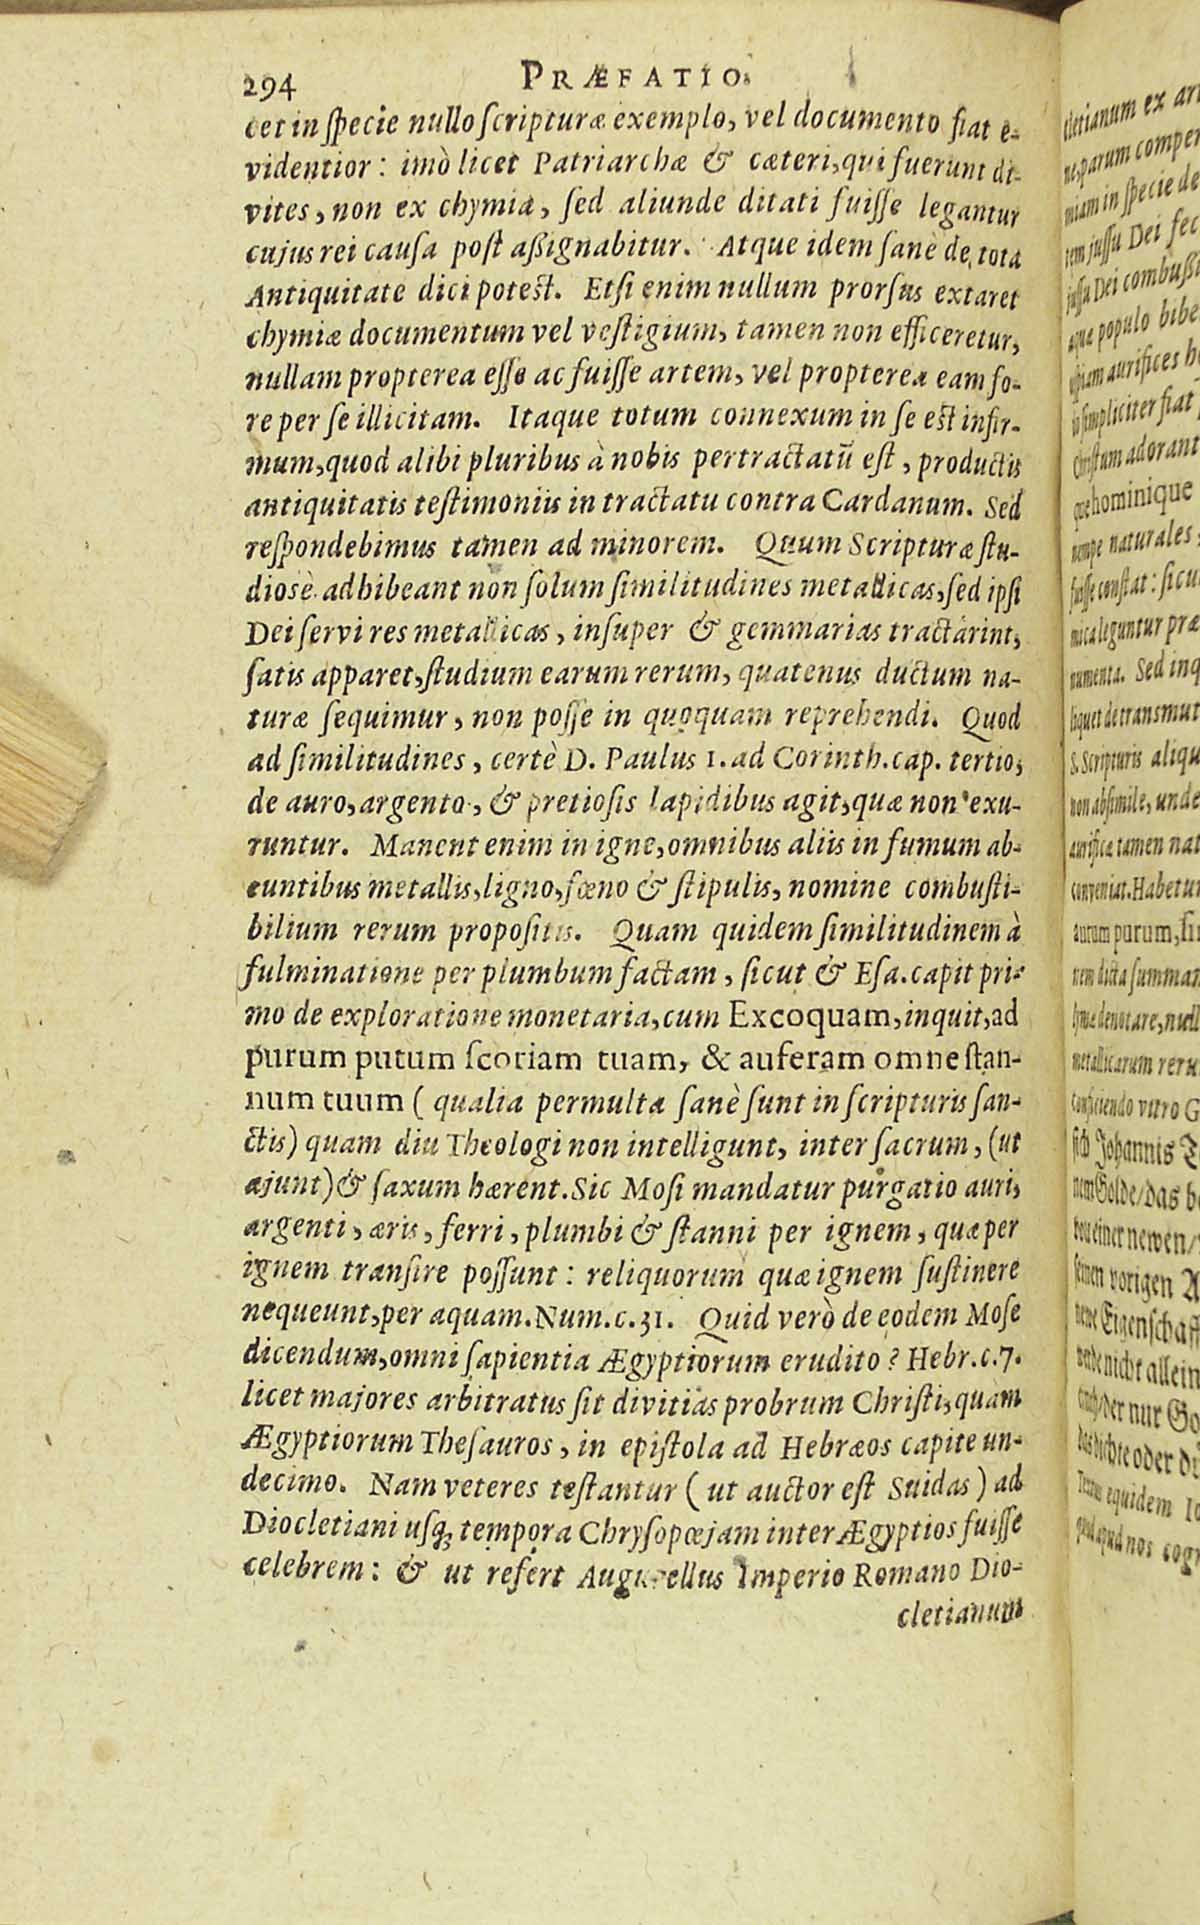 294 PRÆFATIO.
cet in ſpecie nullo ſcripturæ exemplo, vel documento fiat e-
videntior: imò licet Patriarchæ & cæteri, qui fuerunt di-
vites, non ex chymia, ſed aliunde ditati fuiſſe legantur
cujus rei cauſa poſt aßignabitur. Atque idem ſanè de tota
Antiquitate dici poteſt. Etſi enim nullum prorſus extaret
chymiæ documentum vel veſtigium, tamen non efficeretur,
nullam propterea eſſe ac fuiſſe artem, vel propterea eam fo-
re per ſe illicitam. Itaque totum connexum in ſe eſt infir-
mum, quod alibi pluribus à nobis pertractatū eſt, productis
antiquitatis teſtimoniis in tractatu contra Cardanum. Sed
reſpondebimus tamen ad minorem. Quum Scripturæ ſtu-
dioſè adhibeant non ſolum ſimilitudines metallicas, ſed ipſi
Dei ſervi res metallicas, inſuper & gemmarias tractârint,
ſatis apparet, ſtudium earum rerum, quatenus ductum na-
turæ ſequimur, non poſſe in quoquam reprehendi. Quod
ad ſimilitudines, certè D. Paulus 1. ad Corinth. cap. tertio,
de auro, argento, & pretioſis lapidibus agit, quæ non exu-
runtur. Manent enim in igne, omnibus aliis in fumum ab-
euntibus metallis, ligno, fœno & ſtipulis, nomine combuſti-
bilium rerum propoſitis. Quam quidem ſimilitudinem à
fulminatione per plumbum factam, ſicut & Eſa. capit pri-
mo de exploratione monetaria, cum Excoquam, inquit, ad
purum putum ſcoriam tuam, & auferam omne ſtan-
num tuum ( qualia permulta ſanè ſunt in ſcripturis ſan-
ctis) quam diu Theologi non intelligunt, inter ſacrum, (ut
ajunt) & ſaxum hærent. Sic Moſi mandatur purgatio auri,
argenti, æris, ferri, plumbi & ſtanni per ignem, quæ per
ignem tranſire poſſunt: reliquorum quæ ignem ſuſtinere
nequeunt, per aquam. Num. c. 31. Quid verò de eodem Moſe
dicendum, omni ſapientia Ægyptiorum erudito? Hebr. c. 7.
licet majores arbitratus ſit divitias probrum Chriſti, quam
Ægyptiorum Theſauros, in epiſtola ad Hebræos capite un-
decimo. Nam veteres teſtantur ( ut auctor eſt Suidas ) ad
Diocletiani uſq; tempora Chryſopœjam inter Ægyptios fuiſſe
celebrem: & ut refert Augurellus Imperio Romano Dio-
cletianum
cletianum ex
ne, parum
miam in ſpecie de
tem juſſu Dei
juſſu Dei
aquæ populo
aurifices
ſimpliciter fiat
Chriſtum
que hominique
nempe naturales
fuiſſe conſtat:
leguntur
Sed
liquet de
& Scripturis
non abſimile, unde
aurificæ tamen
conveniat. Habetur
aurum purum,
nem dicta
denotare,
metallicarum
conficiendo vitro
ſich Johannis
nem Golde / das
von einer newen /
ſeinen vorigen
newe
werde nicht allein
auch / der nur
das dichte oder
equidem
quod apud nos